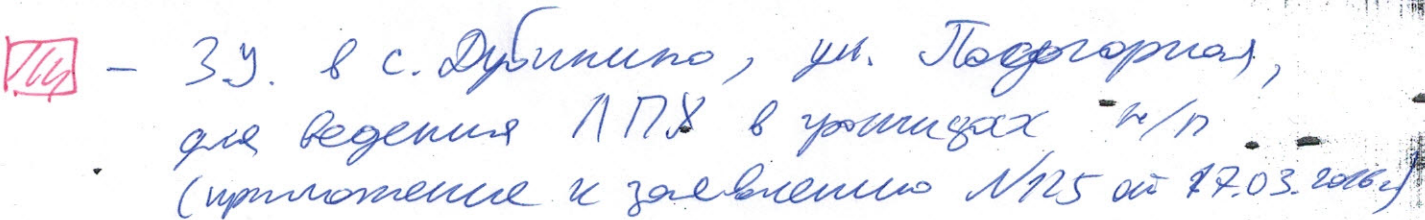 – З.У. в с. Дубинино, ул. Подгорная,
для ведения ЛПХ в границах н/п
(приложение к заявлению №125 от 17.03.2016г)